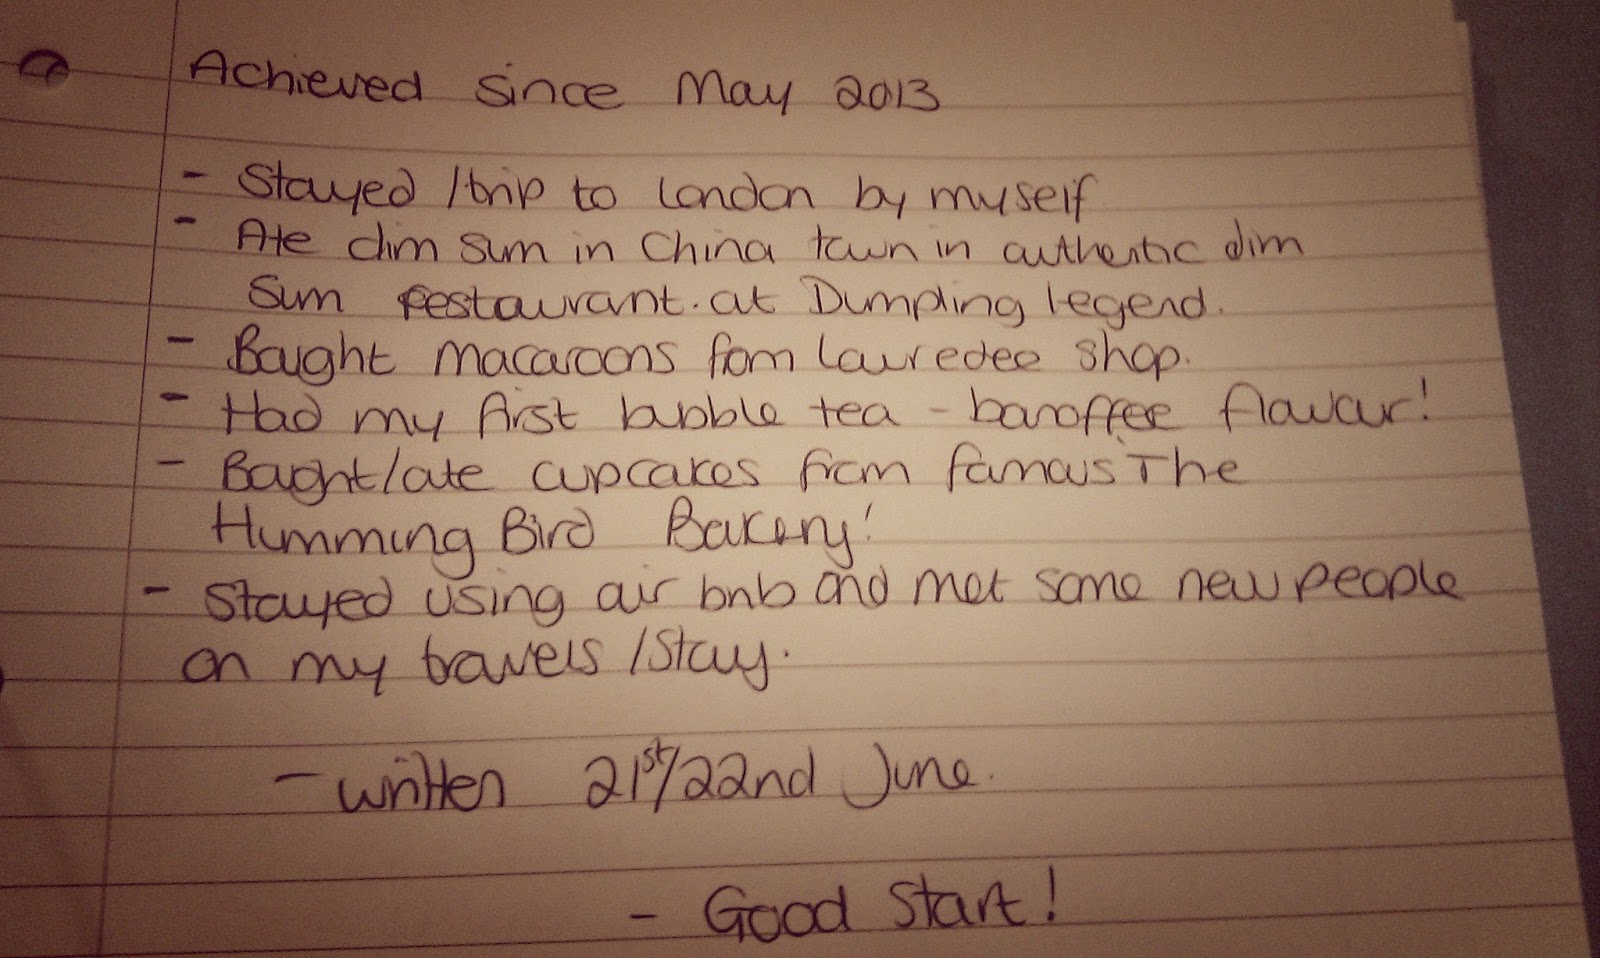 Achieved since May 2013
- Stayed /trip to London by myself
- Ate dim sum in China town in authentic dim
sum restaurant. at Dumpling legend.
- Bought macaroons from Lauredee shop.
- Had my first bubble tea - banoffee flavour!
- Bought/ate cupcakes from famous The
Humming Bird Bakery!
- Stayed using air bnb and met some new people
on my travels /stay.
- written 21st/22nd June.
- Good Start!